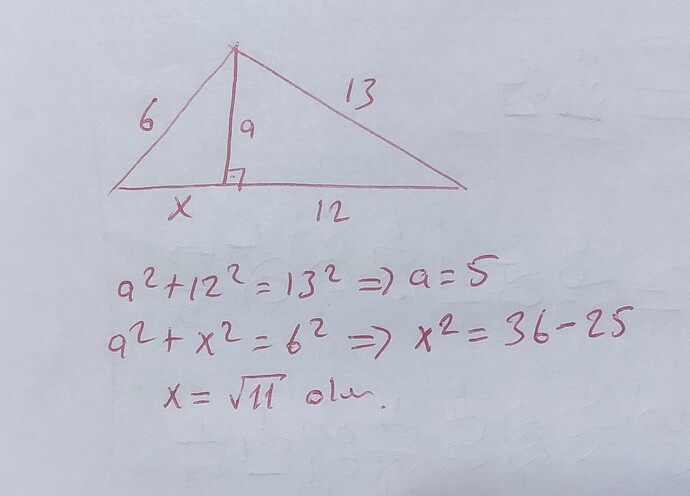 6
13
a
x
12
a² + 12² = 13² => a = 5
a² + x² = 6² => x² = 36 - 25
x = √11 olur.